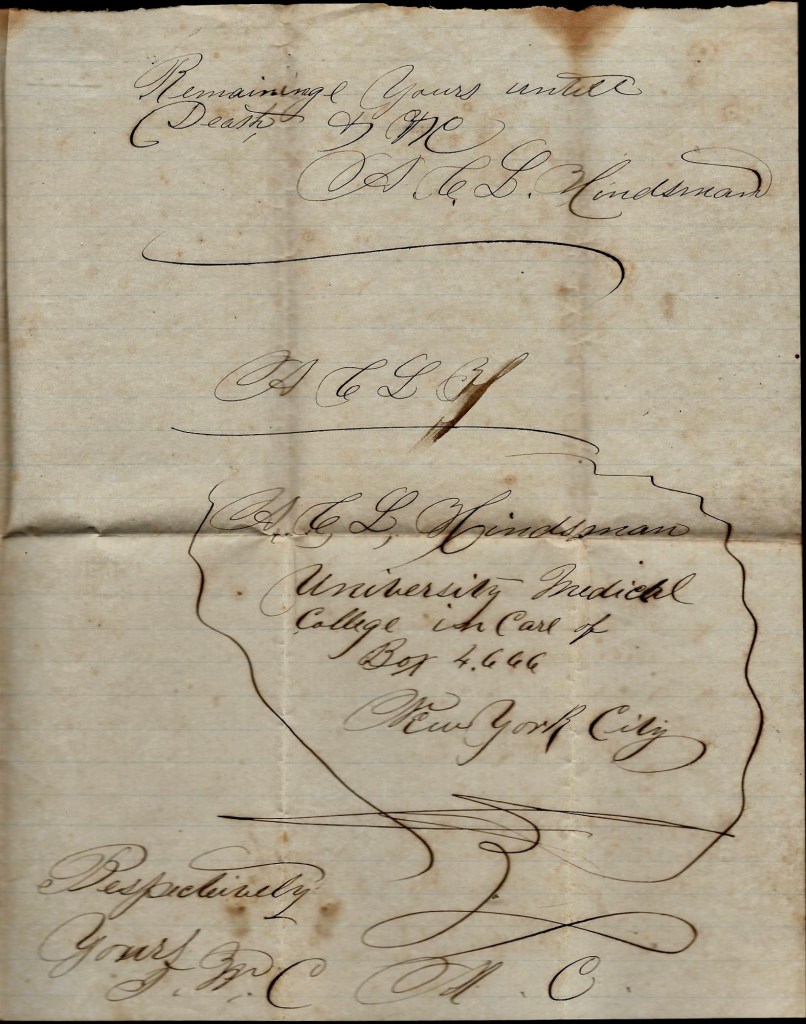 Remaininge Yours untill
Death, & MC
A. C. L. Hindsman
A C L H
A. C, L, Hindsman
University Medical
College in Care of
Box 4.666
New York City
Respectively
Yours
J. M. C M. C.